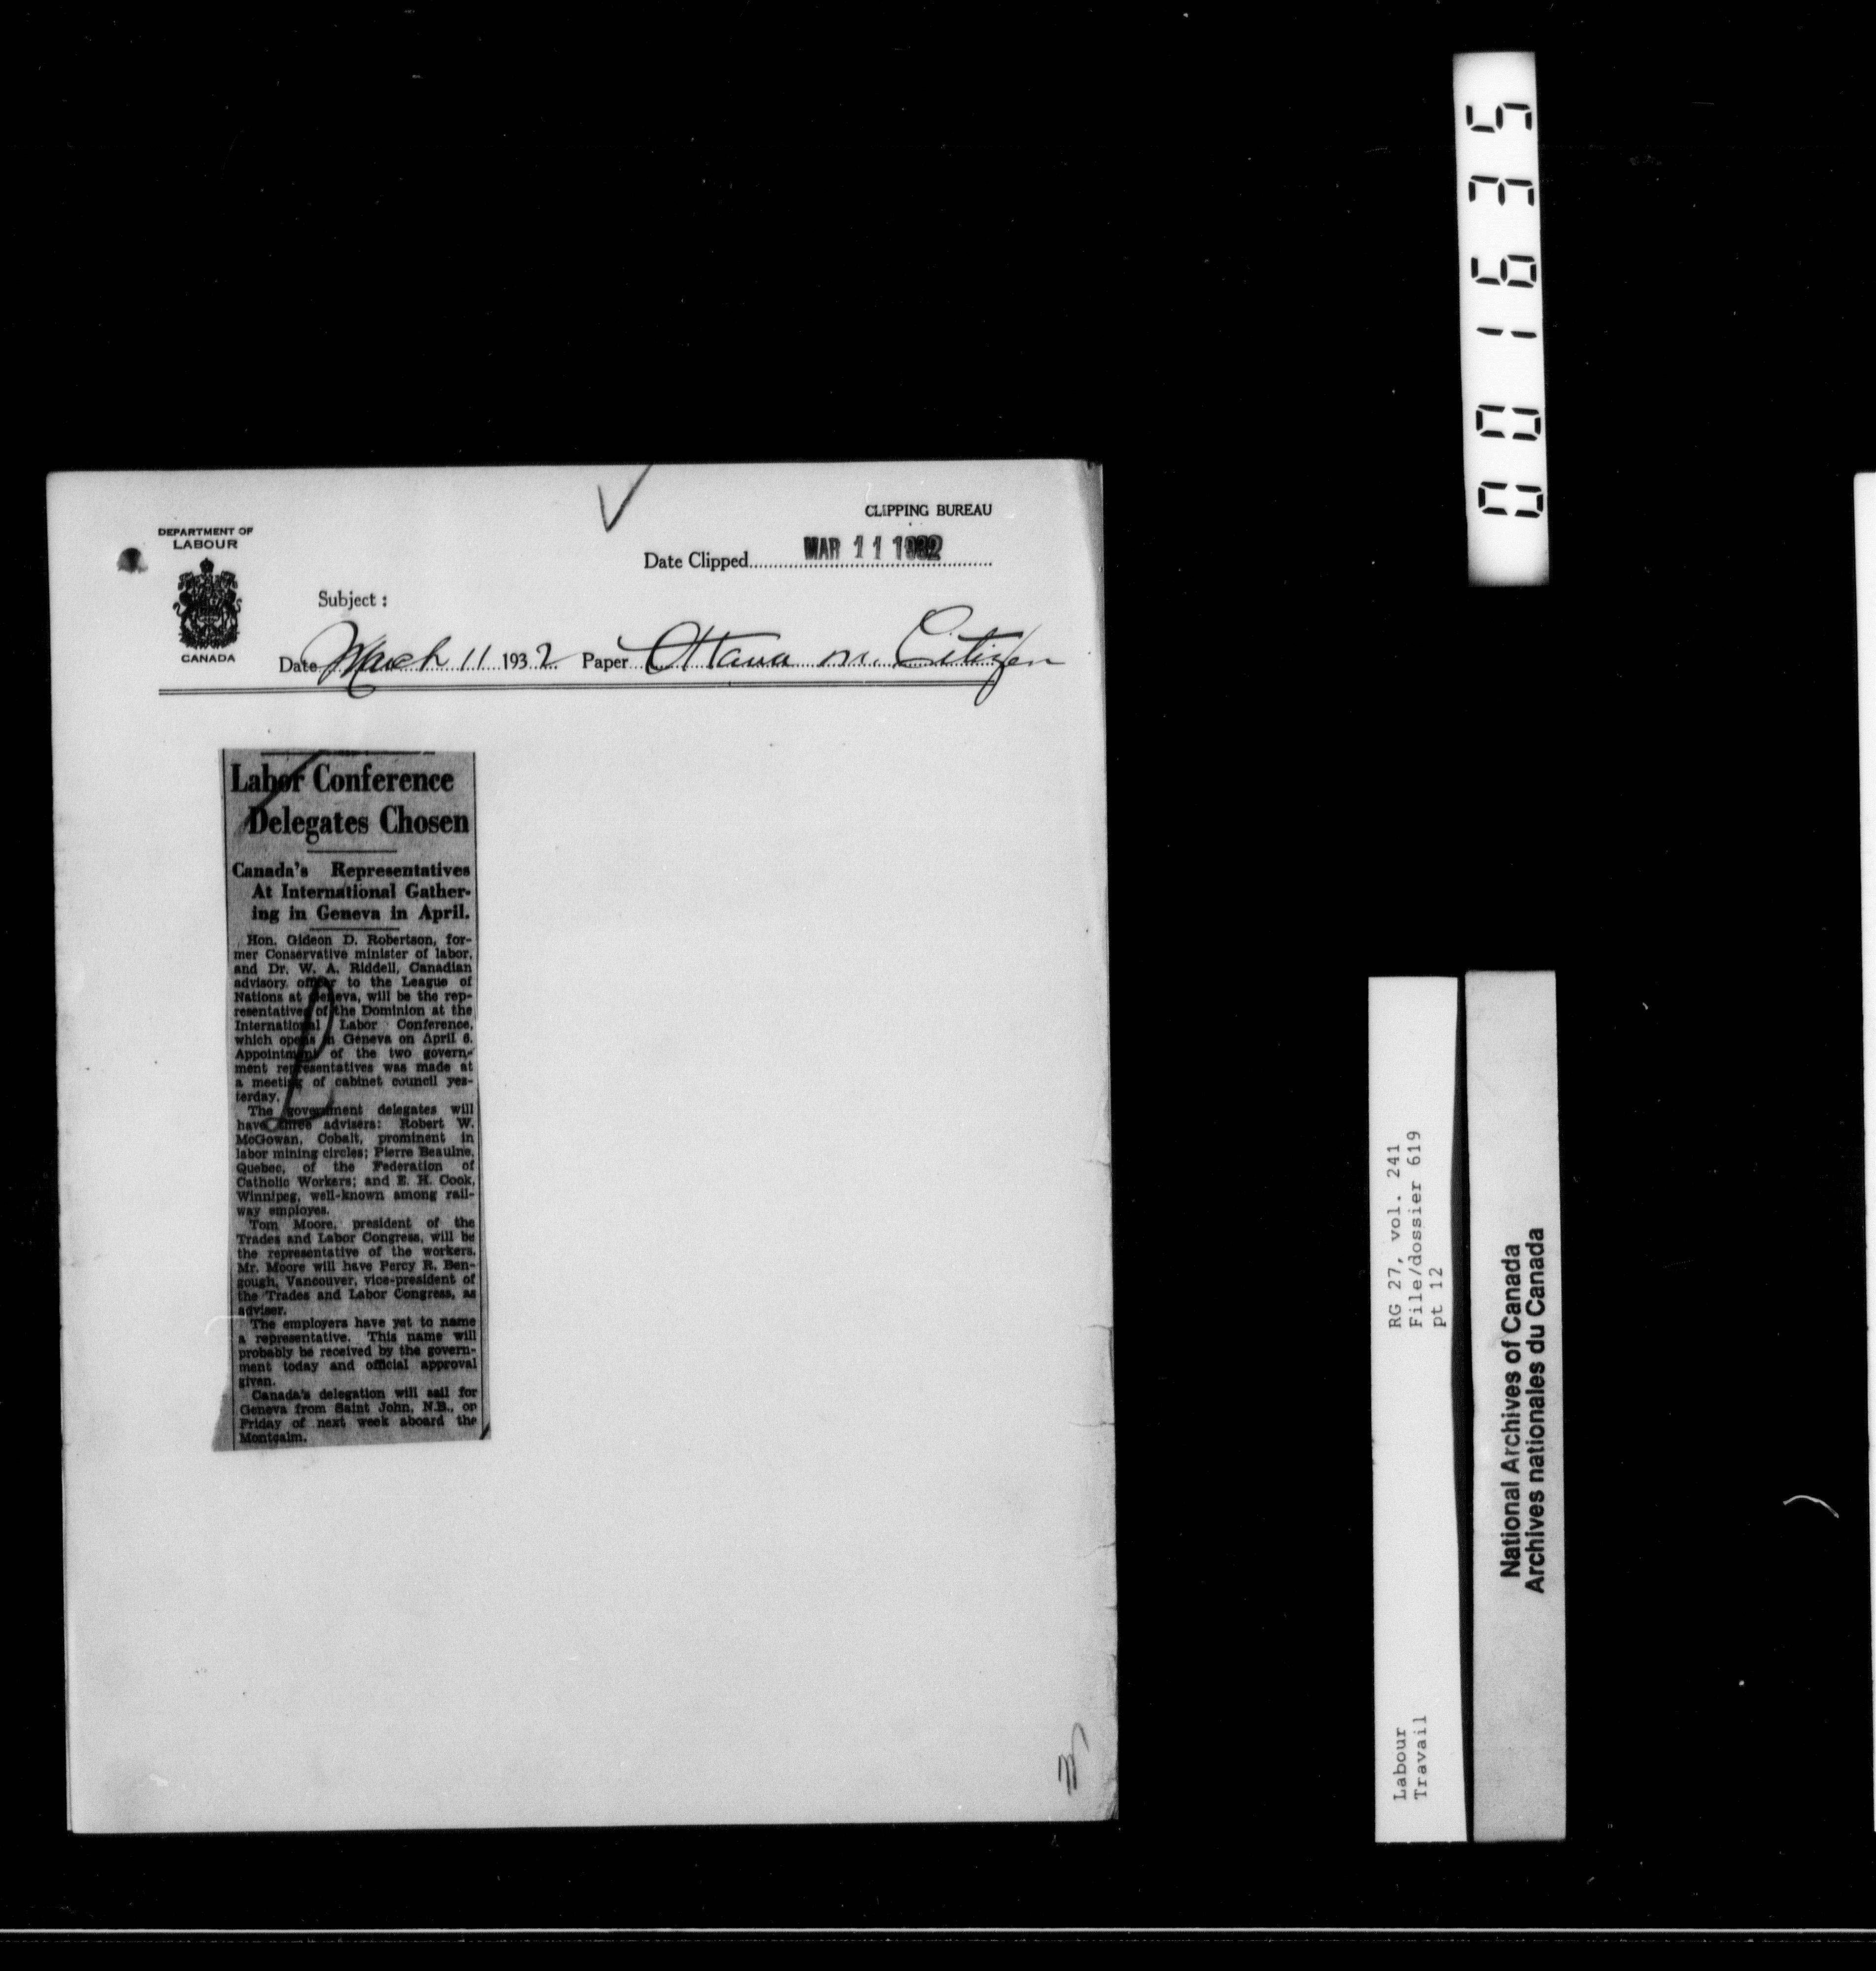 CLIPPING BUREAU
DEPARTMENT OF
LABOUR
CANADA
Date Clipped MAR 11 1932
Subject :
Date March 11 1932 Paper Ottawa m. Citizen
Labor Conference
Delegates Chosen
Canada's Representatives
At International Gather-
ing in Geneva in April.
Hon. Gideon D. Robertson, for-
mer Conservative minister of labor,
and Dr. W. A. Riddell, Canadian
advisory officer to the League of
Nations at Geneva, will be the rep-
resentatives of the Dominion at the
International Labor Conference,
which opens in Geneva on April 6.
Appointment of the two govern-
ment representatives was made at
a meeting of cabinet council yes-
terday.
The government delegates will
have three advisers: Robert W.
McGowan, Cobalt, prominent in
labor mining circles; Pierre Beaulne,
Quebec, of the Federation of
Catholic Workers; and E. H. Cook,
Winnipeg, well-known among rail-
way employes.
Tom Moore, president of the
Trades and Labor Congress, will be
the representative of the workers.
Mr. Moore will have Percy R. Ben-
gough, Vancouver, vice-president of
the Trades and Labor Congress, as
adviser.
The employers have yet to name
a representative. This name will
probably be received by the govern-
ment today and official approval
given.
Canada's delegation will sail for
Geneva from Saint John, N.B., on
Friday of next week aboard the
Montcalm.
001635
RG 27, vol. 241
File/dossier 619
pt 12
Labour
Travail
National Archives of Canada
Archives nationales du Canada